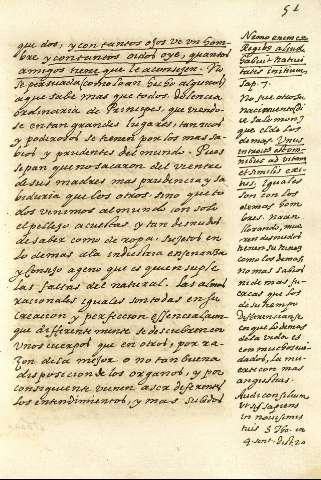 51
que dos, y con tantos ojos ve un hom-
bre y con tantos oidos oye, quantos
amigos tiene que le aconsejen. No
se persuada (como lo an hecho algunos)
a que sabe mas que todos, dolencia
ordinaria de Principes, que viendo-
se en tan grandes lugares, tan ricos
y poderosos se tienen por los mas sa-
bios y prudentes del mundo. Pues
sepan que no sacaron del vientre
de sus madres mas prudencia y sa-
biduria que los otros. sino que to-
dos venimos al mundo con solo
el pellejo acuestas, y tan desnudos
de saber como de ropa: sujetos en
lo demas a la industria enseñanza
y consejo ageno que es quien suple
las faltas del natural. Las almas
racionales iguales son todas en su
creacion y perfeccion essencial, aun
que differentemente se descubren en
unos cuerpos que en otros, por ra-
zon de la mejor o no tan buena
desposicion de los organos, y por
consiguiente vienen a ser deferentes
los entendimientos, y mas subidos
Nemo enim ex
Regibus aliud
habuit nativi-
tatis initium,
Sap. 7.
No fue otro su
nacimiento (di-
ce Salomon)
que el de los
demas. Unus
introitus est om-
nibus ad vitam
et similis exi-
tus. Iguales
son con los
demas hom-
bres. nacen
llorando, mue-
ren desnudos
como los demas,
no mas sabios
ni de mas fu-
erzas que los
de su tiempo
differencianse
en que lo demas
de la vida es
con muchos cui-
dados, la mu-
erte con mas
angustias.
Audi consilium
ut sis sapiens
in novissimis
tuis
4 sent. dist. 20